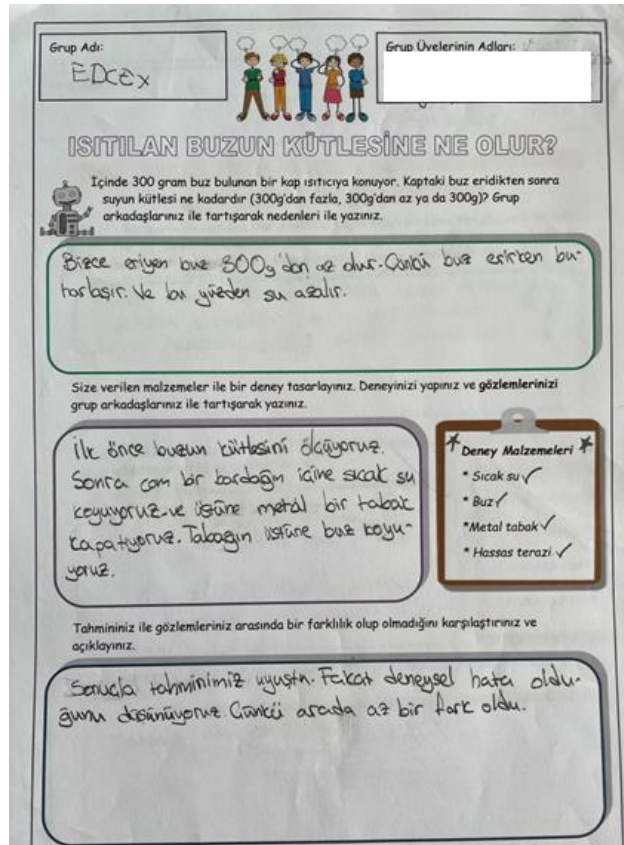 Grup Adı:
EDCEX
Grup Üyelerinin Adları:
ISITILAN BUZUN KÜTLESİNE NE OLUR?
İçinde 300 gram buz bulunan bir kap ısıtıcıya konuyor. Kaptaki buz eridikten sonra
suyun kütlesi ne kadardır (300g'dan fazla, 300g'dan az ya da 300g)? Grup
arkadaşlarınız ile tartışarak nedenleri ile yazınız.
Bizce eriyen buz 300g'dan az olur. Çünkü buz erirken bu-
harlaşır. Ve bu yüzden su azalır.
Size verilen malzemeler ile bir deney tasarlayınız. Deneyinizi yapınız ve gözlemlerinizi
grup arkadaşlarınız ile tartışarak yazınız.
İlk önce buzun kütlesini ölçüyoruz.
Sonra cam bir bardağın içine sıcak su
koyuyoruz ve üstüne metal bir tabak
kapatıyoruz. Tabağın üstüne buz koyu-
yoruz.
Deney Malzemeleri
* Sıcak su ✓
* Buz ✓
* Metal tabak ✓
* Hassas terazi ✓
Tahmininiz ile gözlemleriniz arasında bir farklılık olup olmadığını karşılaştırınız ve
açıklayınız.
Sonuçla tahminimiz uyuştu. Fakat deneysel hata oldu-
ğunu düşünüyoruz. Çünkü arada az bir fark oldu.